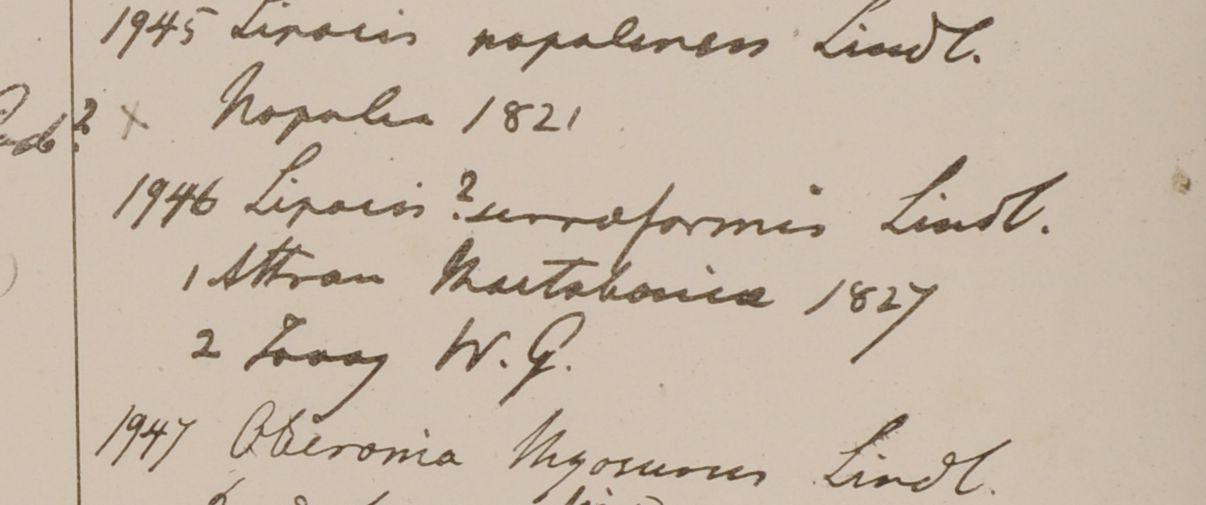 1945 Liparis nepalensis Lindl.
? x Napalia 1821
1946 Liparis ? serraeformis Lindl.
1 Attran Martabania 1827
2 Tavoy W. G.
1947 Oberonia Myosurus Lindl.